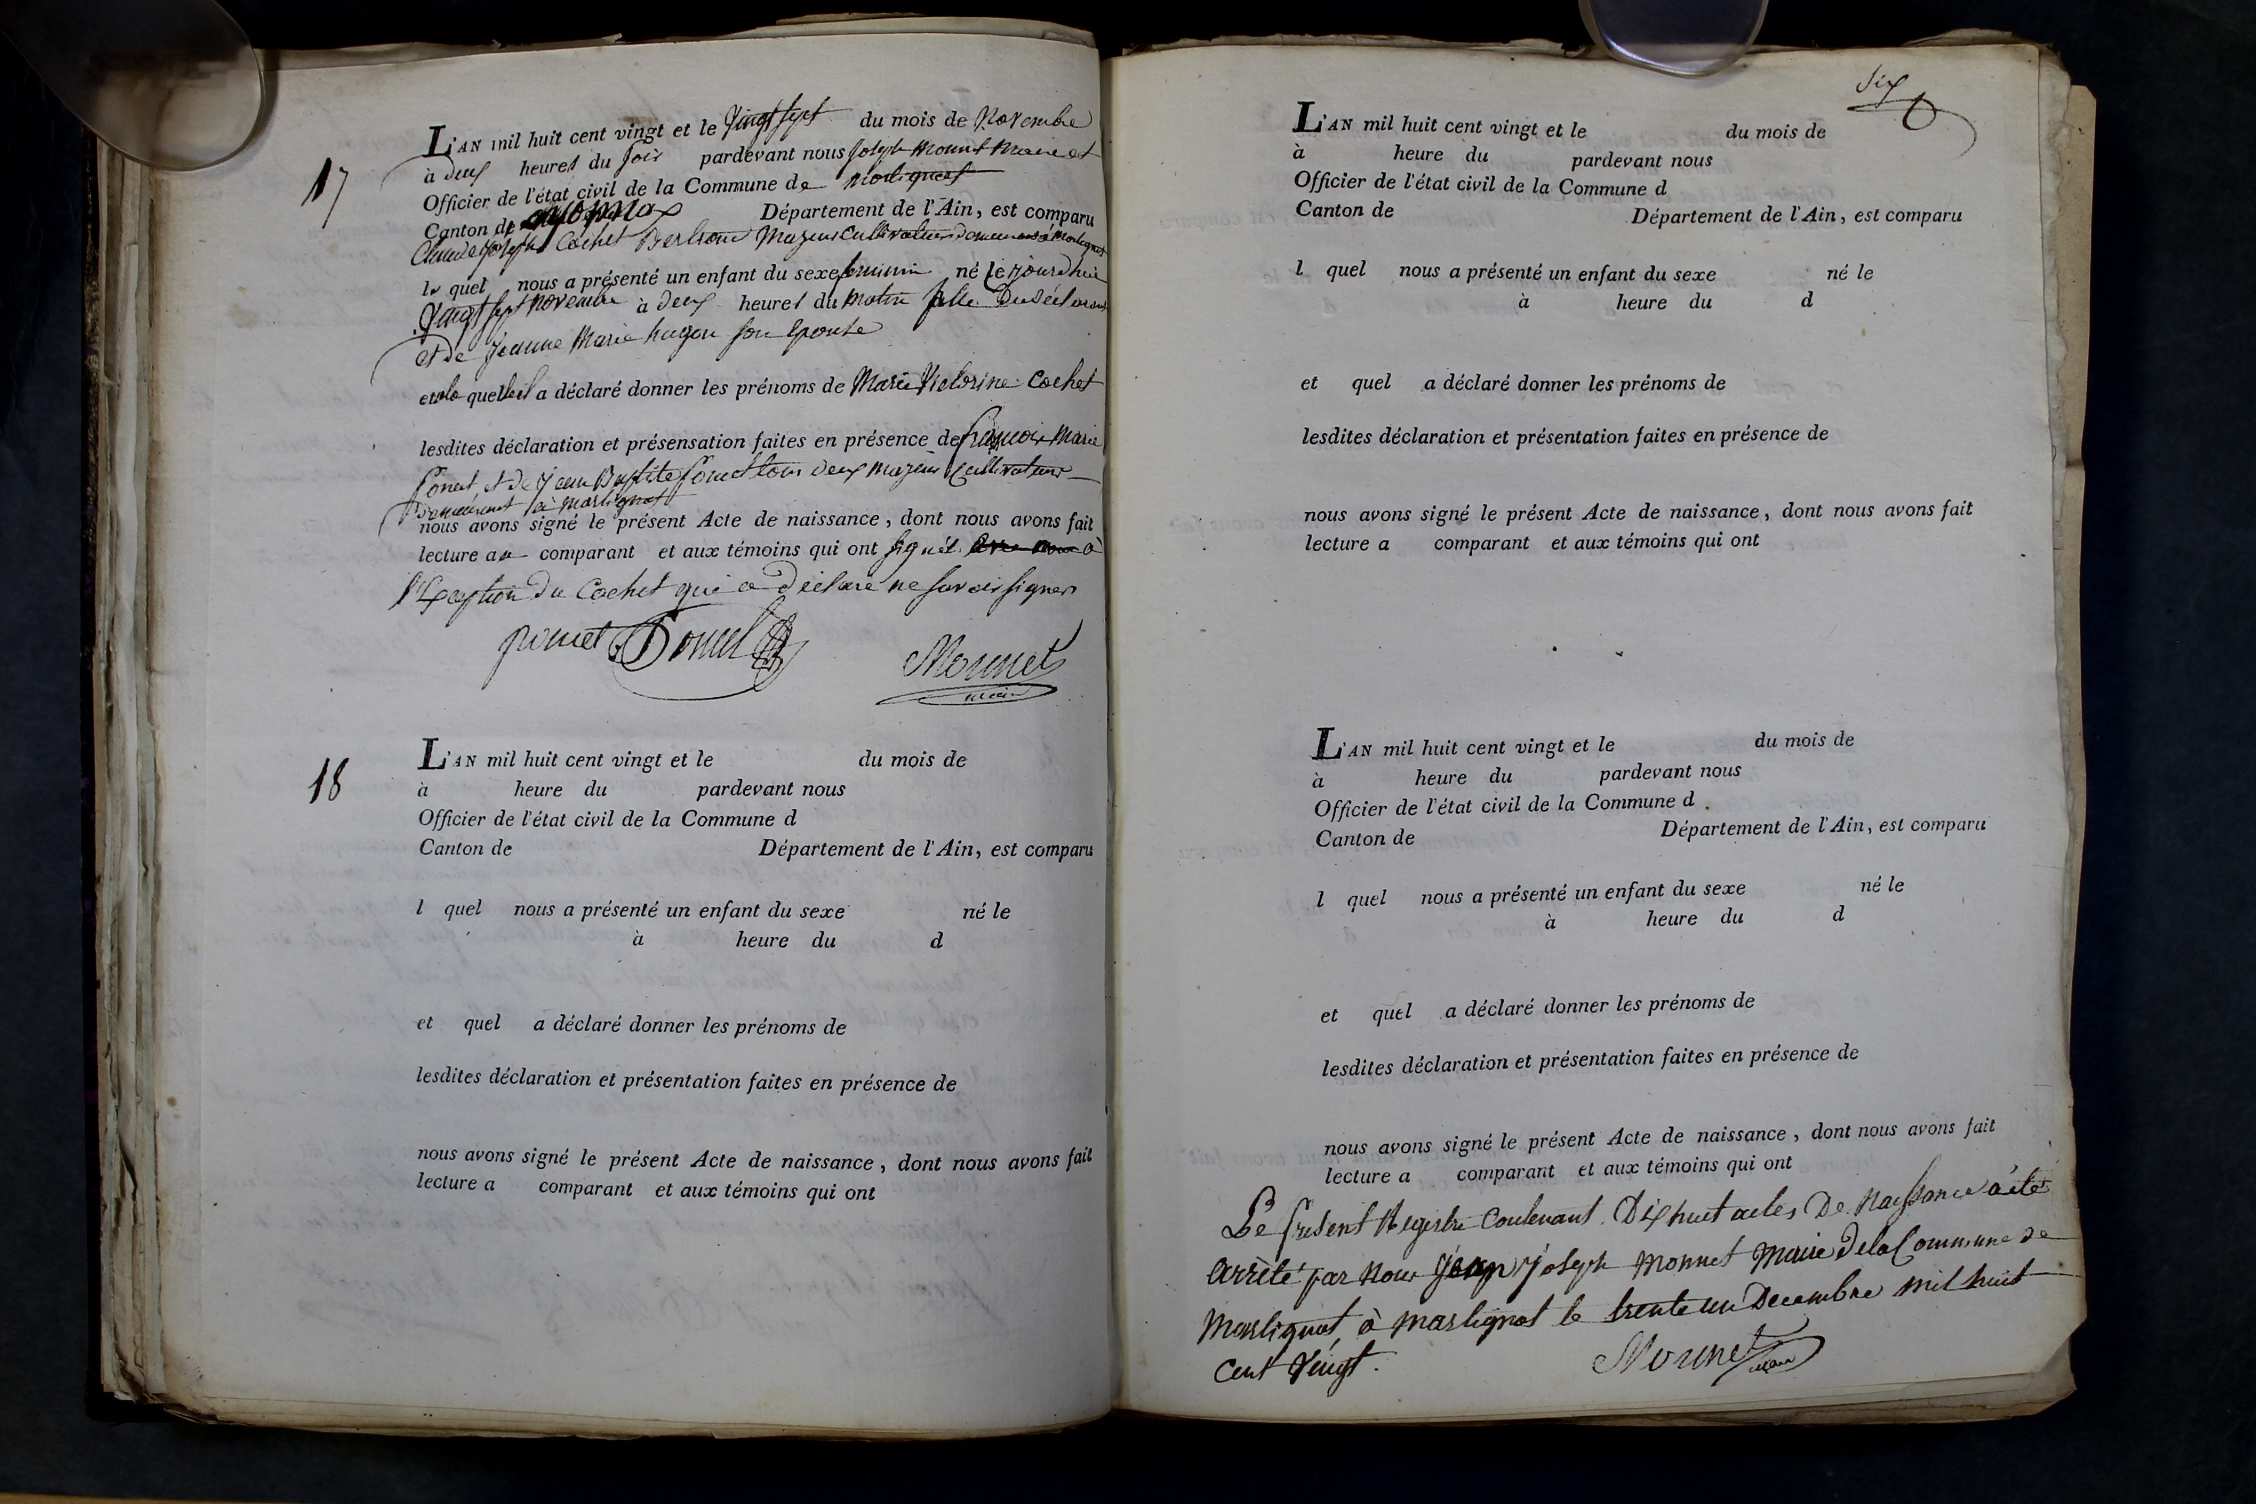 17
L'AN mil huit cent vingt et le Vingt sept du mois de Novembre
à deux heures du soir pardevant nous joseph Monnet Maire et
Officier de l'état civil de la Commune de Martignat
Canton de oyonnax Département de l'Ain, est comparu
Claude joseph Cochet Majeur Cultivateur demeurant à Martignat
le quel nous a présenté un enfant du sexe feminin né le jourdhui
Vingt sept Novembre à deux heures du matin fille du déclarant
et de jeanne Marie hugon son Epouse
et a déclaré donner les prénoms de Marie Victorine Cochet
lesdites déclaration et présensation faites en présence de françois Marie
Poncet et de jean Baptiste Poncet tous deux majeurs Cultivateurs
demeurant à martignat
nous avons signé le présent Acte de naissance, dont nous avons fait
lecture au comparant et aux témoins qui ont signé à
l'Exception du Cochet qui a déclaré ne savoir signer
poncet Poncet
Monnet
maire
18
L'AN mil huit cent vingt et le du mois de
à heure du pardevant nous
Officier de l'état civil de la Commune d
Canton de Département de l'Ain, est comparu
l quel nous a présenté un enfant du sexe né le
à heure du d
et quel a déclaré donner les prénoms de
lesdites déclaration et présentation faites en présence de
nous avons signé le présent Acte de naissance, dont nous avons fait
lecture a comparant et aux témoins qui ont
six
L'AN mil huit cent vingt et le du mois de
à heure du pardevant nous
Officier de l'état civil de la Commune d
Canton de Département de l'Ain, est comparu
l quel nous a présenté un enfant du sexe né le
à heure du d
et quel a déclaré donner les prénoms de
lesdites déclaration et présentation faites en présence de
nous avons signé le présent Acte de naissance, dont nous avons fait
lecture a comparant et aux témoins qui ont
L'AN mil huit cent vingt et le du mois de
à heure du pardevant nous
Officier de l'état civil de la Commune d
Canton de Département de l'Ain, est comparu
l quel nous a présenté un enfant du sexe né le
à heure du d
et quel a déclaré donner les prénoms de
lesdites déclaration et présentation faites en présence de
nous avons signé le présent Acte de naissance, dont nous avons fait
lecture a comparant et aux témoins qui ont
Le present Registre Contenant Dix huit actes De Naissance a été
arrèté par Nous joseph Monnet Maire de la Commune de
Martignat, à martignat le trente un Decembre mil huit
cent Vingt.
Monnet
maire